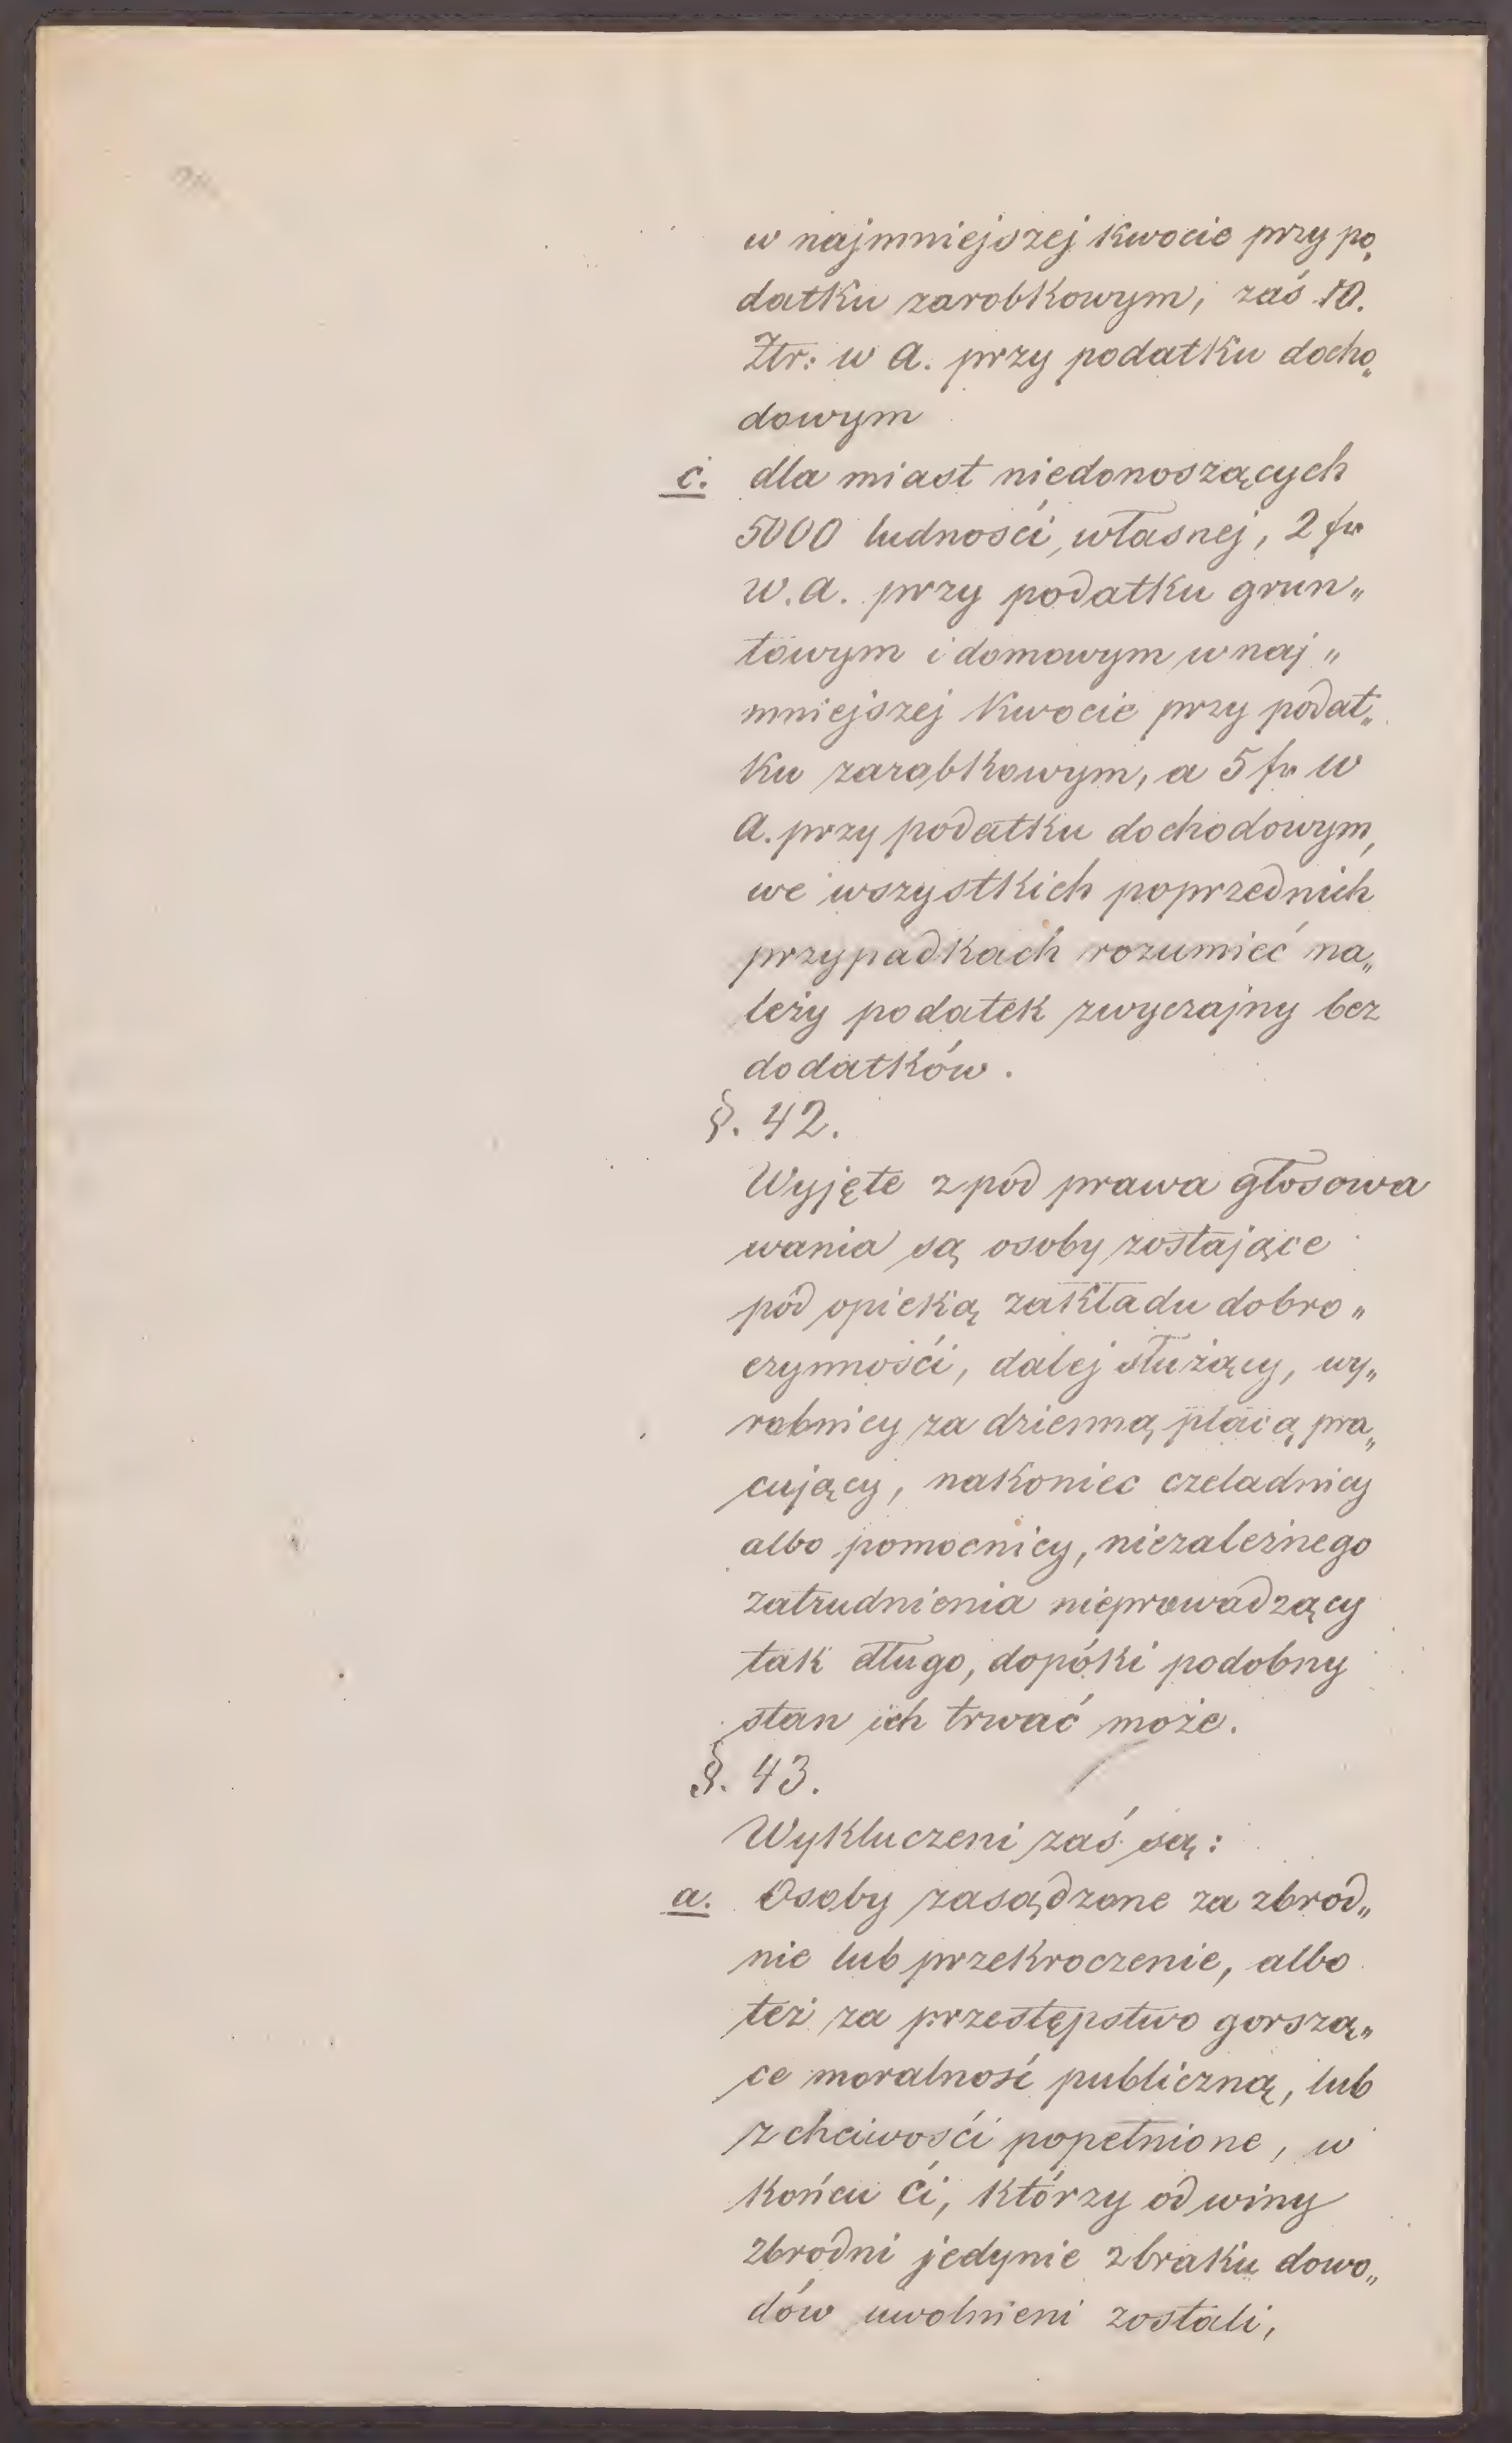 w najmniejszej kwocie przy po„
datku zarobkowym, zaś 10.
Złr: w a. przy podatku docho„
dowym
c. dla miast niedonoszących
5000 ludności, własnej, 2 fr
w. a. przy podatku grun„
towym i domowym w naj„
mniejszej kwocie przy podat„
ku zarabkowym, a 5 fr w
a. przy podatku dochodowym,
we wszystkich poprzednich
przypadkach rozumieć na„
leży podatek zwyczajny bez
dodatków.
§. 42.
Wyjęte z pod prawa głosowa
wania są osoby zostające
pod opieką zakładu dobro„
czynnośći, dalej służący, wy„
robnicy za dzienną płacą pra„
cujący, nakoniec czeladnicy
albo pomocnicy, niezależnego
zatrudnienia nieprowadzący
tak długo, dopóki podobny
stan ich trwać może.
§. 43.
Wykluczeni zaś są:
a. Osoby zasądzone za zbrod„
nie lub przekroczenie, albo
też za przestępstwo gorszą„
ce moralność publiczną, lub
z chciwośći popełnione, w
końcu ći, którzy od winy
zbrodni jedynie z braku dowo„
dów uwolnieni zostali,